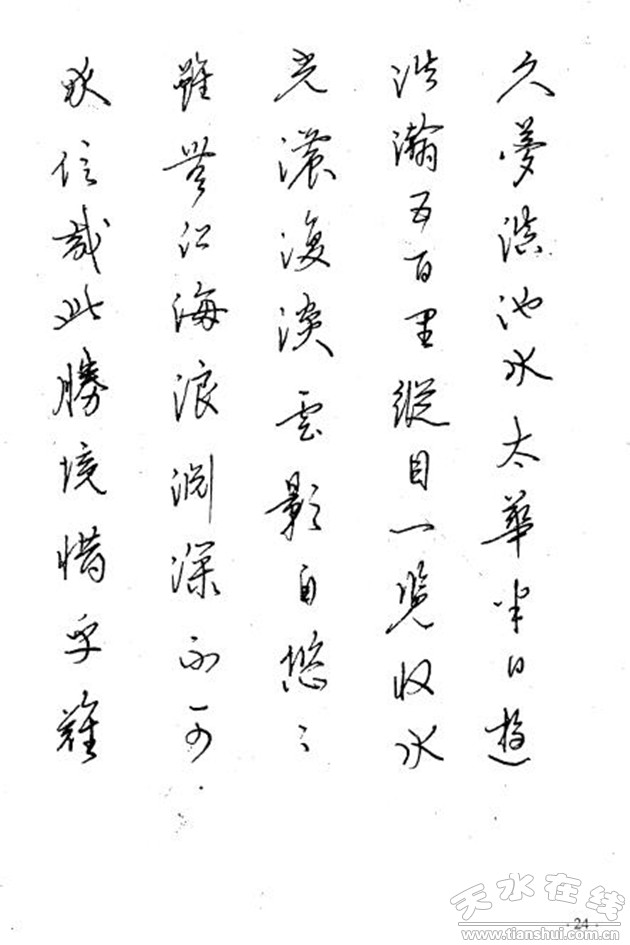 久夢滇池水太華半日遊
浩瀚五百里縱目一覽收水
光濃復淡雲影自悠〻
雖無江海浪淵深不可
測信哉此勝境惜乎難
天水在线
www.tianshui.com.cn
·24·